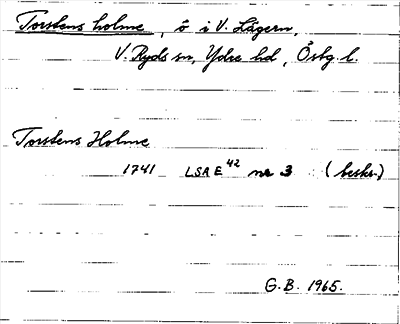 Torstens holme, ö i V. Lägern,
V. Ryds sn, Ydre hd, Östg. l.
Torstens Holme
1741 LSA E 42 nr 3 (beskr.)
G.B. 1965.